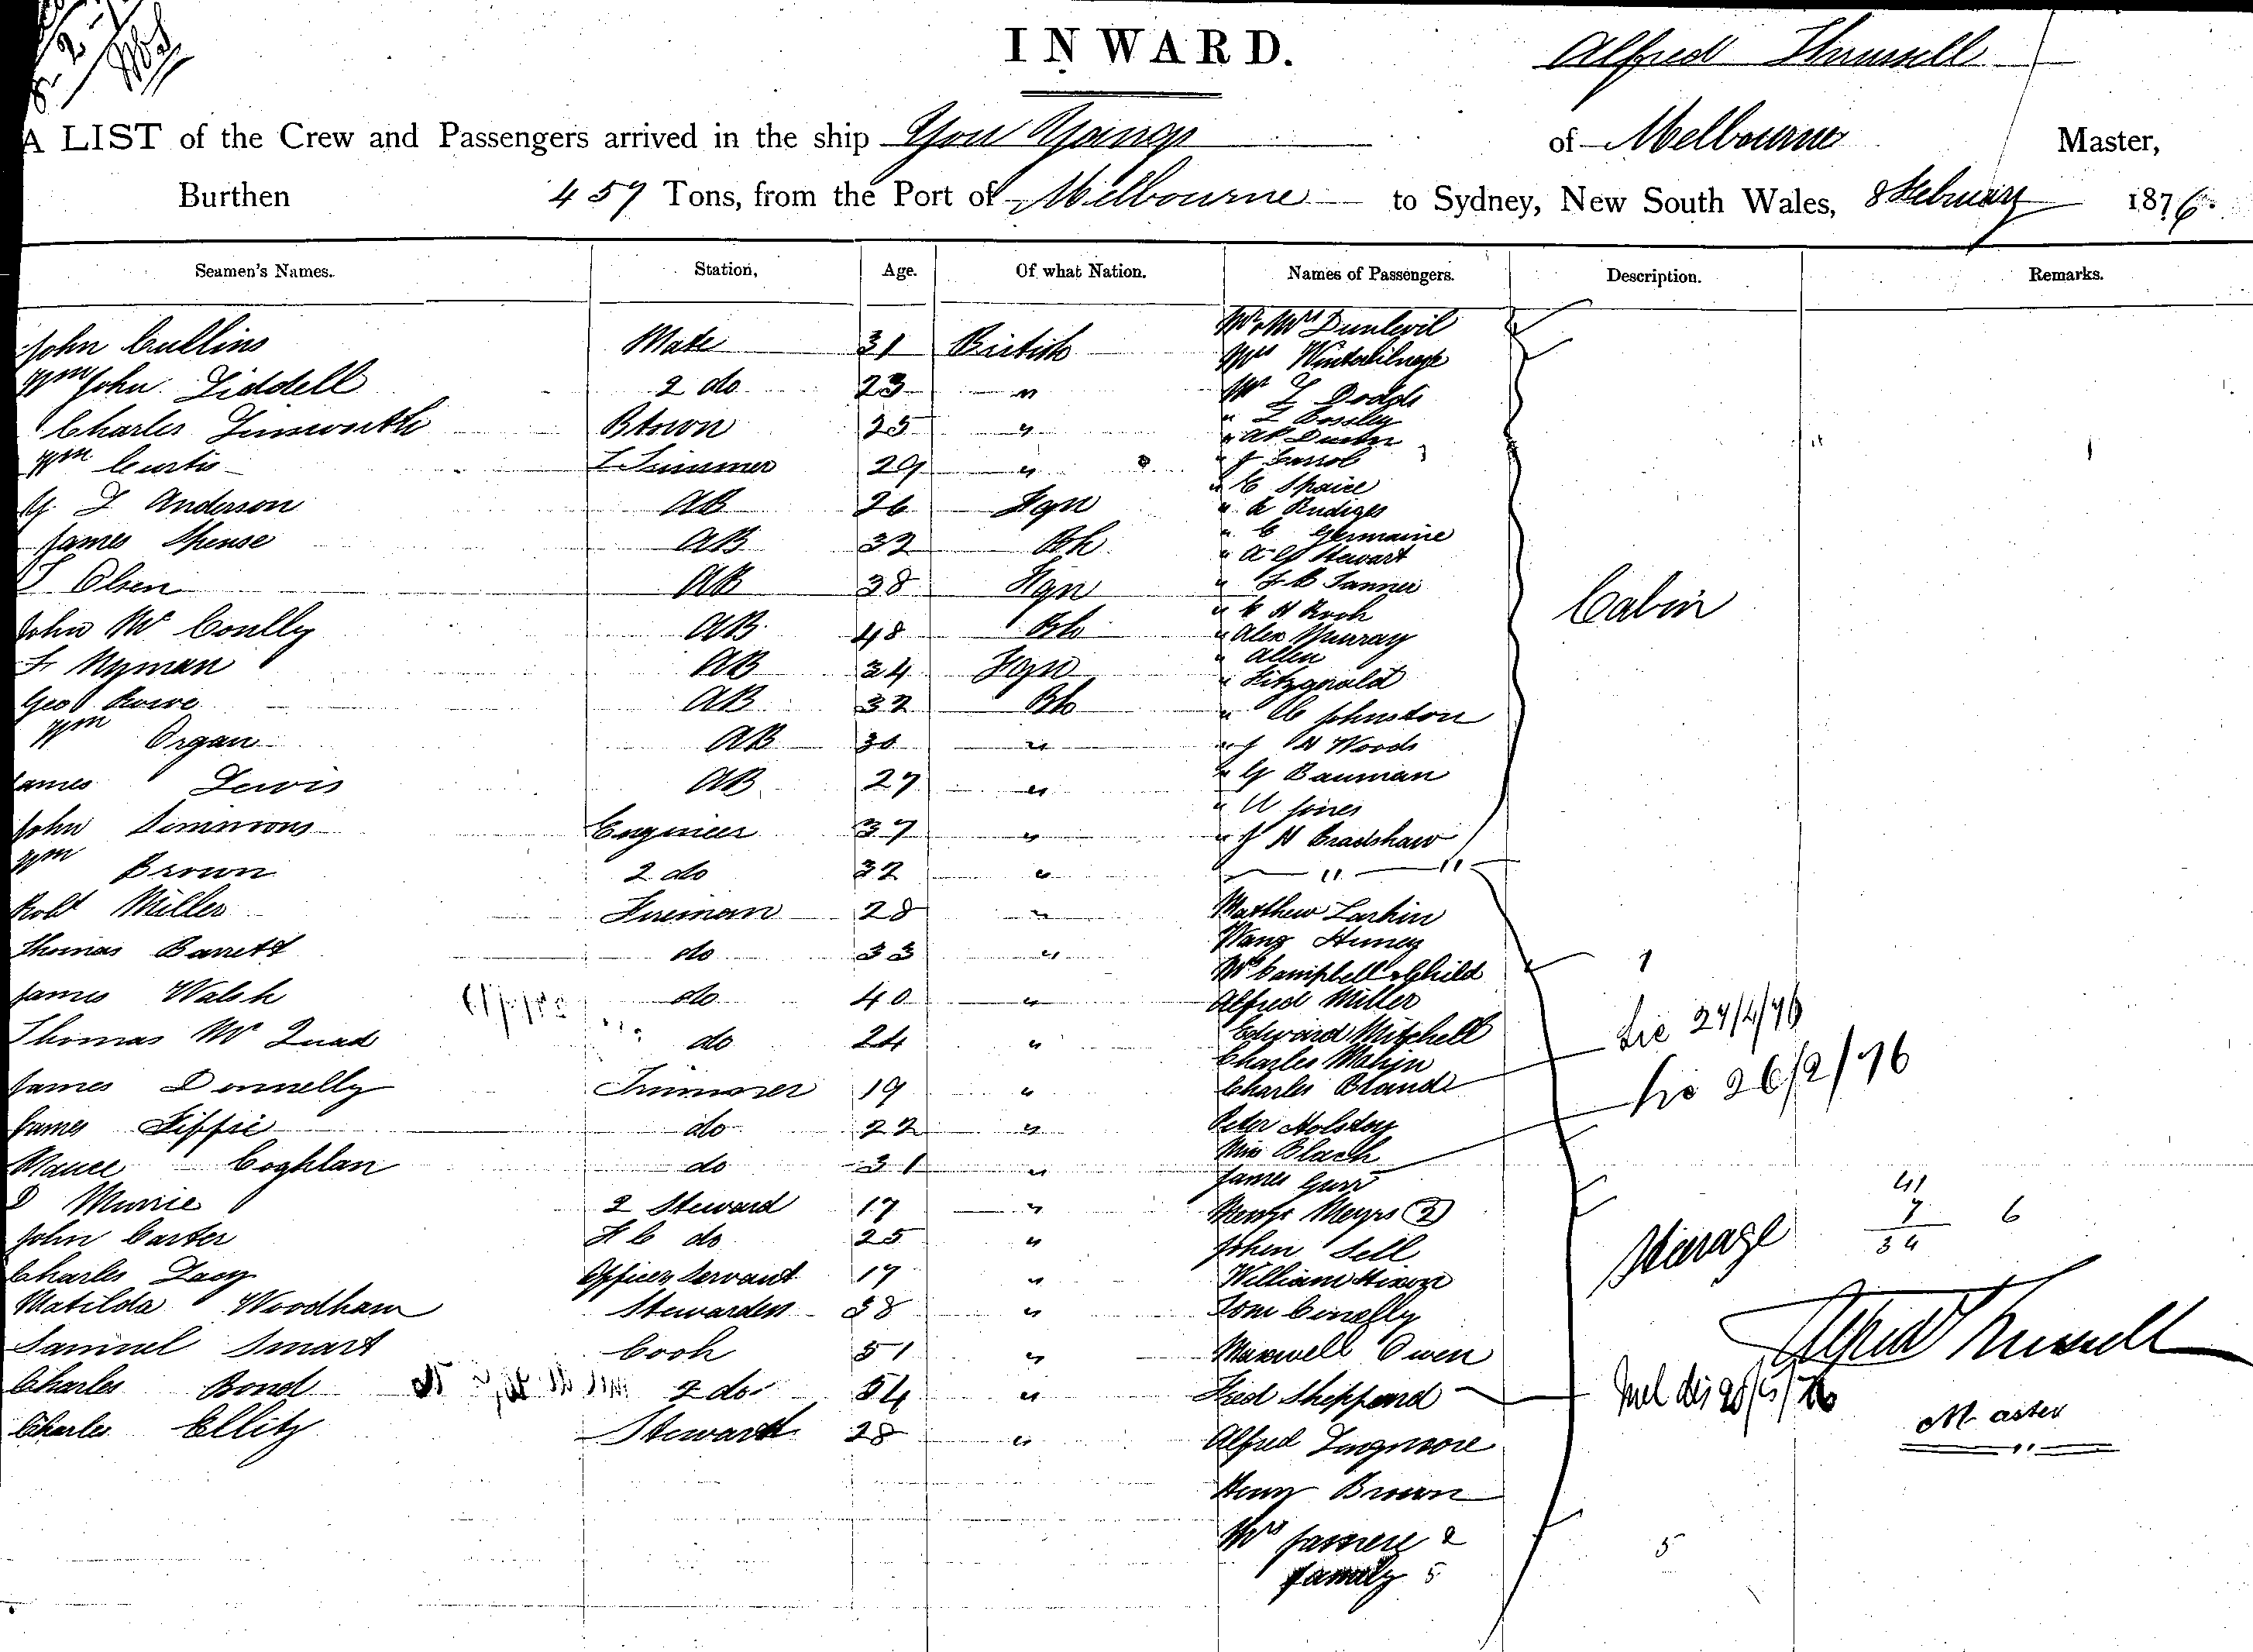 INWARD.
Alfred Thrussell
A LIST of the Crew and Passengers arrived in the ship You Yangs of Melbourne Master,
Burthen 459 Tons, from the Port of Melbourne to Sydney, New South Wales, 8 February 1876.
Seamen's Names. Station, Age. Of what Nation. Names of Passengers. Description. Remarks.
John Cullins Mate 31 British
Wm John Liddell 2 do 23 "
Charles Linworth Btswn 25 "
Wm Curtis L Trimmer 29 "
G. L Anderson AB 26 Fgn
James Spense AB 32 Bh
Olsen AB 38 Fgn
John Mc Coully AB 48 Bh
F Nyman AB 34 Fgn
Geo Rowe AB 32 Bh
Wm Organ AB 30 "
James Lewis AB 27 "
John Simmons Engineer 37 "
Wm Brown 2 do 32 "
Robt Miller Fireman 28 "
Thomas Barrett do 33 "
James Walsh do 40 "
Thomas Mc Quad do 24 "
James Donnelly Trimmer 19 "
James Tippie do 22 "
Maurce Coghlan do 31 "
D Munie 2 Steward 17 "
John Carter F C do 25 "
Charles Lacy Officers Servant 17 "
Matilda Woodham Stewardess 38 "
Samuel Smart Cook 51 "
Charles Bond 2 do 54 "
Charles Ellity Steward 28 "
Mr & Mrs Dunlevil
Mrs
Mr L Dodds
" L Cossley
" J Carrol
" C Spaice
" A Rudiges
" C Germaine
" A G Stewart
" F C Tanner
" C H Rook
" Alex Murray
" Allen
" Fitzgerald
" C Johnston
" J H Woods
" G Bauman
" U Jones
" J H Bradshaw
Cabin
Matthew Larkin
Wang Huney
Mrs Campbell & Child 1
Alfred Miller
Edward Mitchell
Charles Mahin
Charles Bland Lic 27/4/76
Peter Holstoy
Miss Black
James Gurr Lic 26/2/76
Messrs Meyrs (2)
John Sell
William Hixon
Tom Conelly
Maxwell Owen
Fred Sheppard Mel dis 28/5/76
Alfred Longmore
Henry Brown
Mrs Jasnese &
family 5 5
Stearage
41
7 6
34
Alfred Thrussell
Master